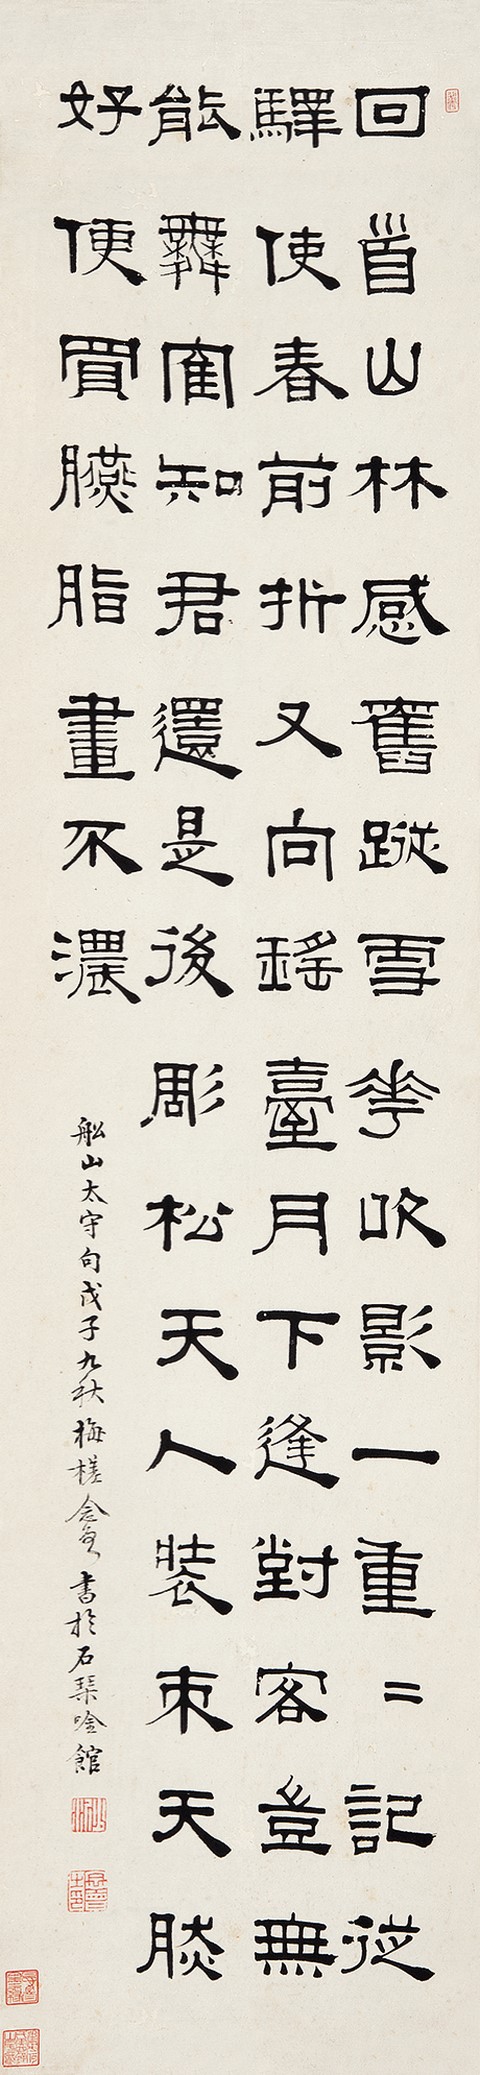 回首山林感舊蹤雪花吹影一重=記從
驛使春前折又向瑤臺月下逢對客豈無
能舞隺知君還是後彫松天人裝束天肰
好便買臙脂畫不濃
船山太守句戊子九秋梅槎書於石琴吟館